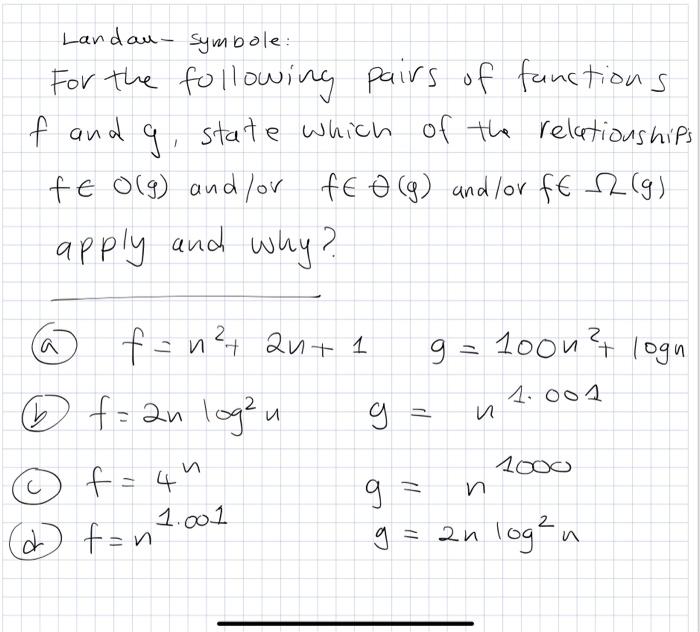 Landau- symbole:
For the following pairs of functions
f and g, state which of the relationships
f∈ O(g) and/or f∈ Θ(g) and/or f∈ Ω(g)
apply and why?
(a) f = n² + 2n + 1 g = 100n² + logn
(b) f = 2n log² n g = n^1.001
(c) f = 4^n g = n^1000
(d) f = n^1.001 g = 2n log² n